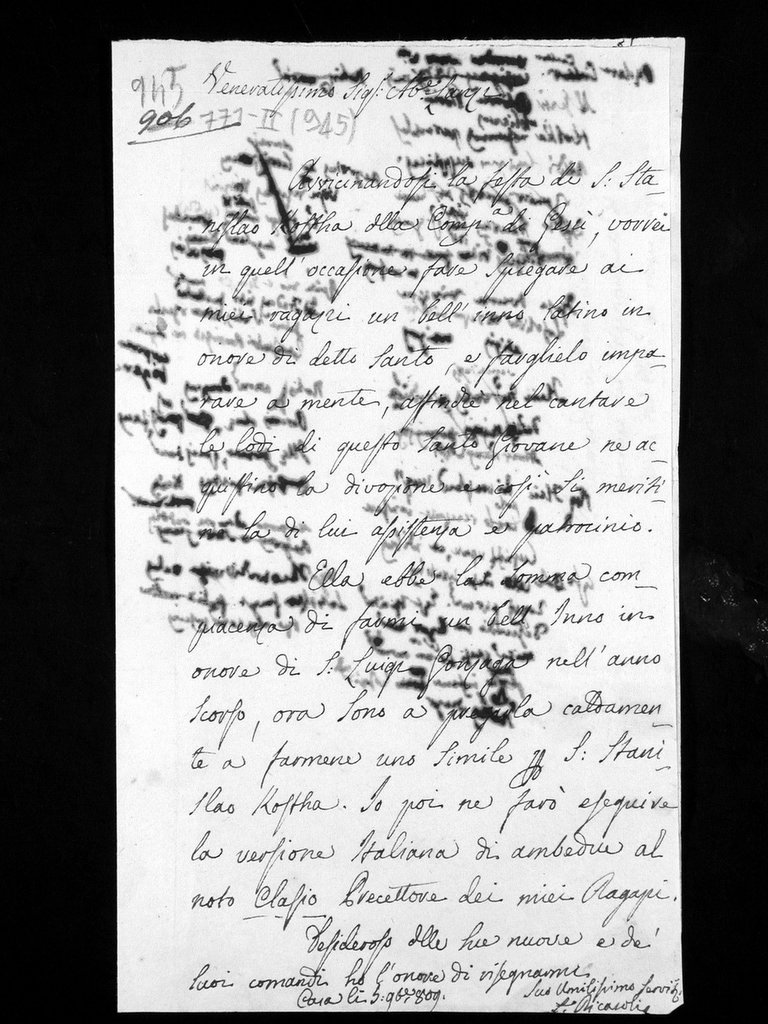 945
906 771-II (945)
Veneratissimo Sig.r Ab.e Lanzi
Avvicinandosi la festa di S: Sta-
nislao Kostka della Comp.a di Gesù, vorrei
in quell'occasione fare spiegare ai
miei ragazzi un bell'inno latino in
onore di detto Santo, e farglielo impa-
rare a mente, affinchè nel cantare
le lodi di questo Santo Giovane ne ac-
quistino la divozione e così si meriti-
no la di lui assistenza e patrocinio.
Ella ebbe la somma com-
piacenza di farmi un bell'Inno in
onore di S: Luigi Gonzaga nell'anno
scorso, ora sono a pregarla caldamen-
te a farmene uno simile per S: Stani-
slao Kostka. Io poi ne farò eseguire
la versione Italiana di ambedue al
noto Clasio Precettore dei miei Ragazzi.
Desideroso delle sue nuove e de'
suoi comandi ho l'onore di rassegnarmi
Casa li 5: 9bre 809.
Suo Umilissimo Servit.
L: Ricasoli